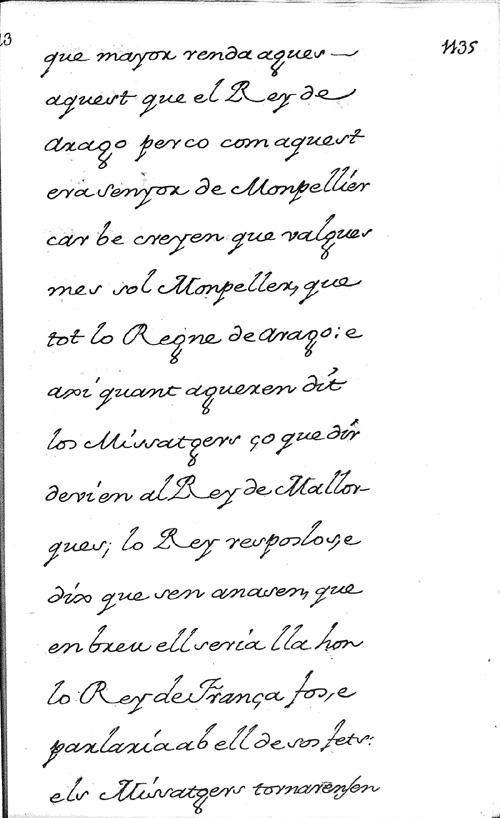 1135
que mayor renda agues —
aquest que el Rey de
Arago perco com aquest
era senyor de Monpellier
car be creyen que valgues
mes sol Monpeller, que
tot lo Regne de Arago: e
axi quant agueren dit
los Missatgers ço que dir
devien al Rey de Mallor-
ques; lo Rey resposlos, e
dix que sen anasen, que
en breu ell seria lla hon
lo Rey de França fos, e
parlaria ab ell de sos fets:
els Missatgers tornarensen